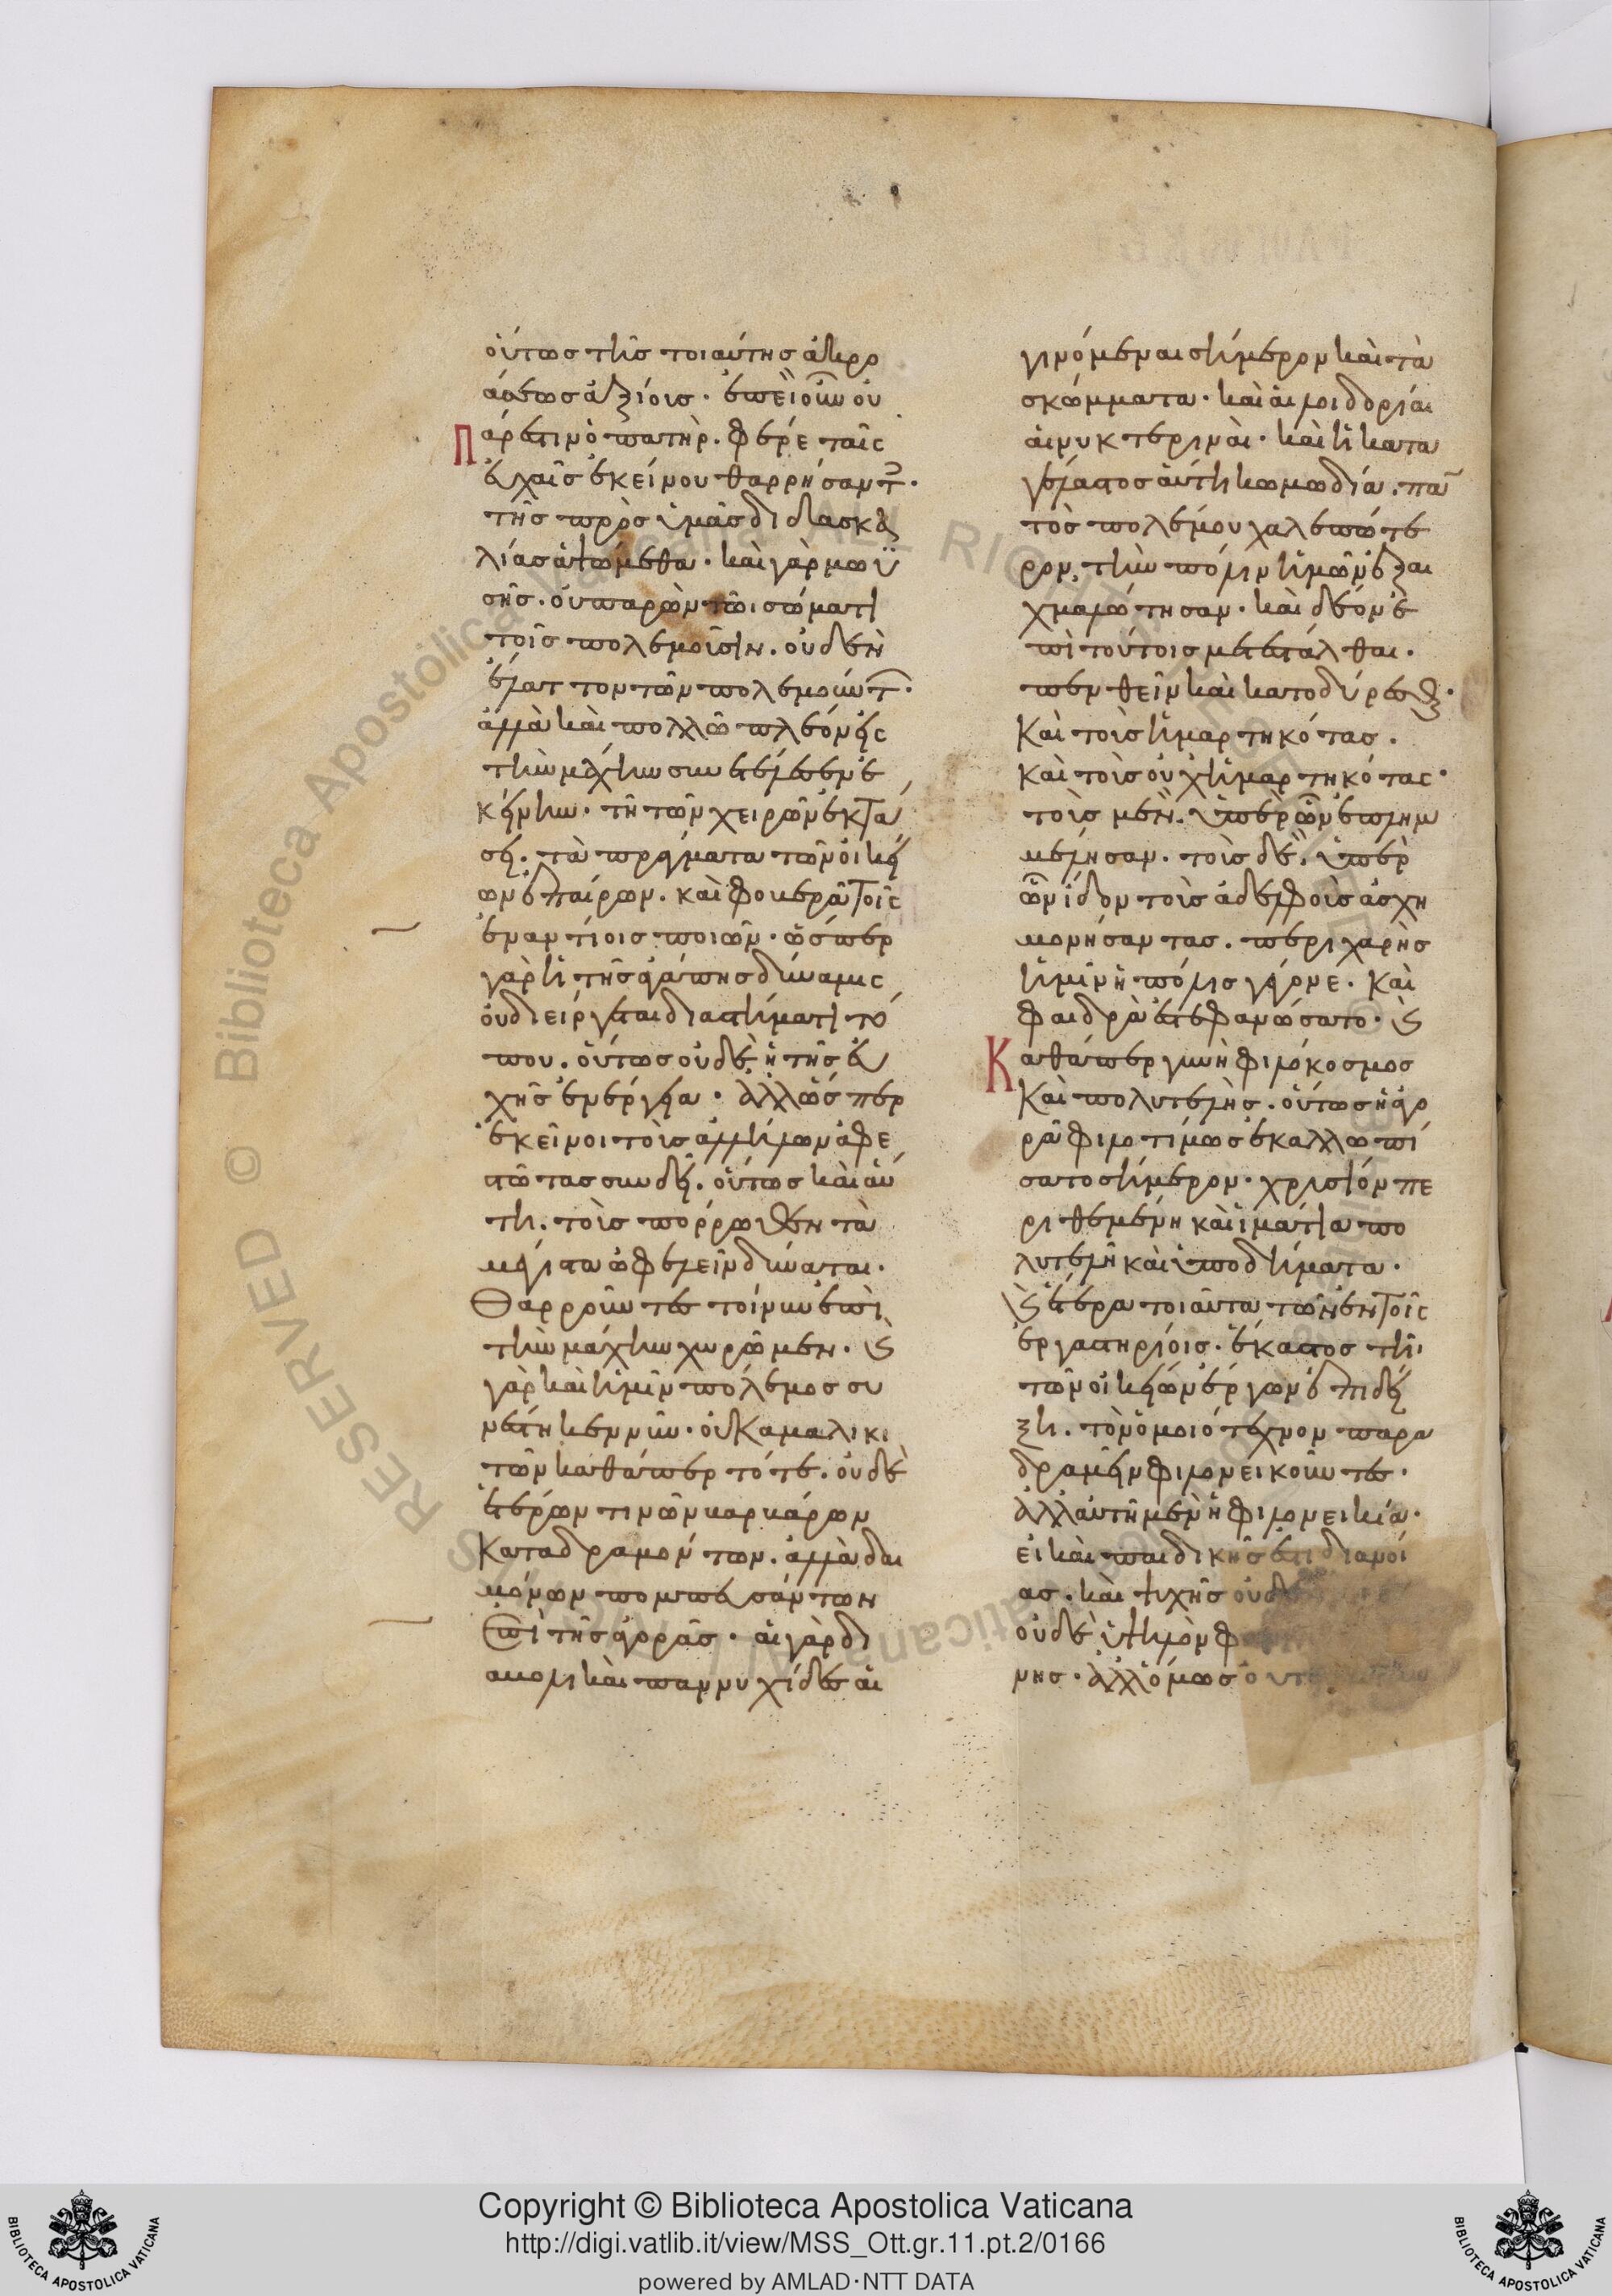 οὕτως τῆς τοιαύτης ἀκρο
άσεως ἀξίοις. ἐπεὶ οὖν οὐ
πάρεστιν ὁ πατὴρ. φέρε ταῖς
εὐχαῖς ἐκείνου θαρρήσαντ.
τῆς πρὸς ὑμᾶς διδασκα
λίας ἁψώμεθα. καὶ γὰρ μωϋ
σῆς. οὐ παρὼν τῶι σώματι
τοῖς πολεμοῦσιν. οὐδὲν
ἔλαττον τῶν πολεμούντ.
ἀλλὰ καὶ πολλῶ πλέον εἰς
τὴν μάχην συνετέλεσεν ἐ
κείνην. τῆ τῶν χειρῶν ἐκτά
σει. τὰ πράγματα τῶν οἰκεί
ων ἐπαίρων. καὶ φοβερὰ τοῖς
ἐναντίοις ποιῶν. ὥσπερ
γὰρ ἡ τῆς ἀγάπης δύναμις
οὐ διείργεται διαστήματι τό
που. οὕτως οὐδὲ ἡ τῆς εὐ
χῆς ἐνέργεια. ἀλλ' ὥσπερ
ἐκείνοι τοὺς ἀλλήλων ἀφε
στῶτας συνδεῖ. οὕτως καὶ αὕ
τη. τοὺς πόρρωθεν τὰ
μέγιστα ὠφελεῖν δύναται.
Θαρροῦντες τοίνυν ἐπὶ
τὴν μάχην χωρῶμεν. καὶ
γὰρ καὶ ἡμῖν πόλεμος συ
νέστηκεν νῦν. οὐκ ἀμαλικι
τῶν καθάπερ τότε. οὐδὲ
ἑτέρων τινῶν βαρβάρων
καταδραμόντων. ἀλλὰ δαι
μόνων πομπευσάντων
ἐπὶ τῆς ἀγορᾶς. αἱ γὰρ δι
αβολικαὶ παννυχίδες αἱ
γινόμεναι σήμερον καὶ τὰ
σκώμματα. καὶ αἱ λοιδορίαι
αἱ νυκτεριναὶ. καὶ ἡ κατα
γέλαστος αὕτη κωμωδία. παν
τὸς πολέμου χαλεπώτε
ρον. τὴν πόλιν ἡμῶν ἐξαι
χμαλώτησαν. καὶ δέον ἐ
πὶ τούτοις μετεστάλθαι.
πενθεῖν καὶ κατοδύρεσθαι.
Καὶ τοὺς ἡμαρτηκότας.
καὶ τοὺς οὐχ ἡμαρτηκότας.
τοὺς μὲν. ὑπὲρ ὧν ἐπλημ
μέλησαν. τοὺς δὲ. ὑπὲρ
ὧν ἴδον τοὺς ἀδελφοὺς ἀσχη
μονήσαντας. περιχαρὴς
ἡμῖν ἡ πόλις γέγονε. καὶ
φαιδρὰ ἐστεφανώσατο. καὶ
Καθάπερ γυνὴ φιλόκοσμος
καὶ πολυτελὴς. οὕτως ἡ ἀγο
ρὰ φιλοτίμως ἐκαλλωπί
σατο σήμερον. χρυσίον πε
ριθεμένη καὶ ἱμάτια πο
λυτελῆ καὶ ὑποδήματα.
καὶ ἕτερα τοιαῦτα τῶν ἐν τοῖς
ἐργαστηρίοις. ἕκαστος τῆ
τῶν οἰκείων ἔργων ἐπιδεί
ξει. τὸν ὁμοιότεχνον παρα
δραμεῖν φιλονεικοῦντες.
ἀλλ' αὕτη μὲν ἡ φιλονεικία.
εἰ καὶ παιδικῆς ἐστι διανοί
ας. καὶ ψυχῆς
οὐδὲ ὑψηλὸν
νης. ἀλλ' ὅμως
Copyright © Biblioteca Apostolica Vaticana
http://digi.vatlib.it/view/MSS_Ott.gr.11.pt.2/0166
powered by AMLAD·NTT DATA
BIBLIOTECA APOSTOLICA VATICANA
BIBLIOTECA APOSTOLICA VATICANA